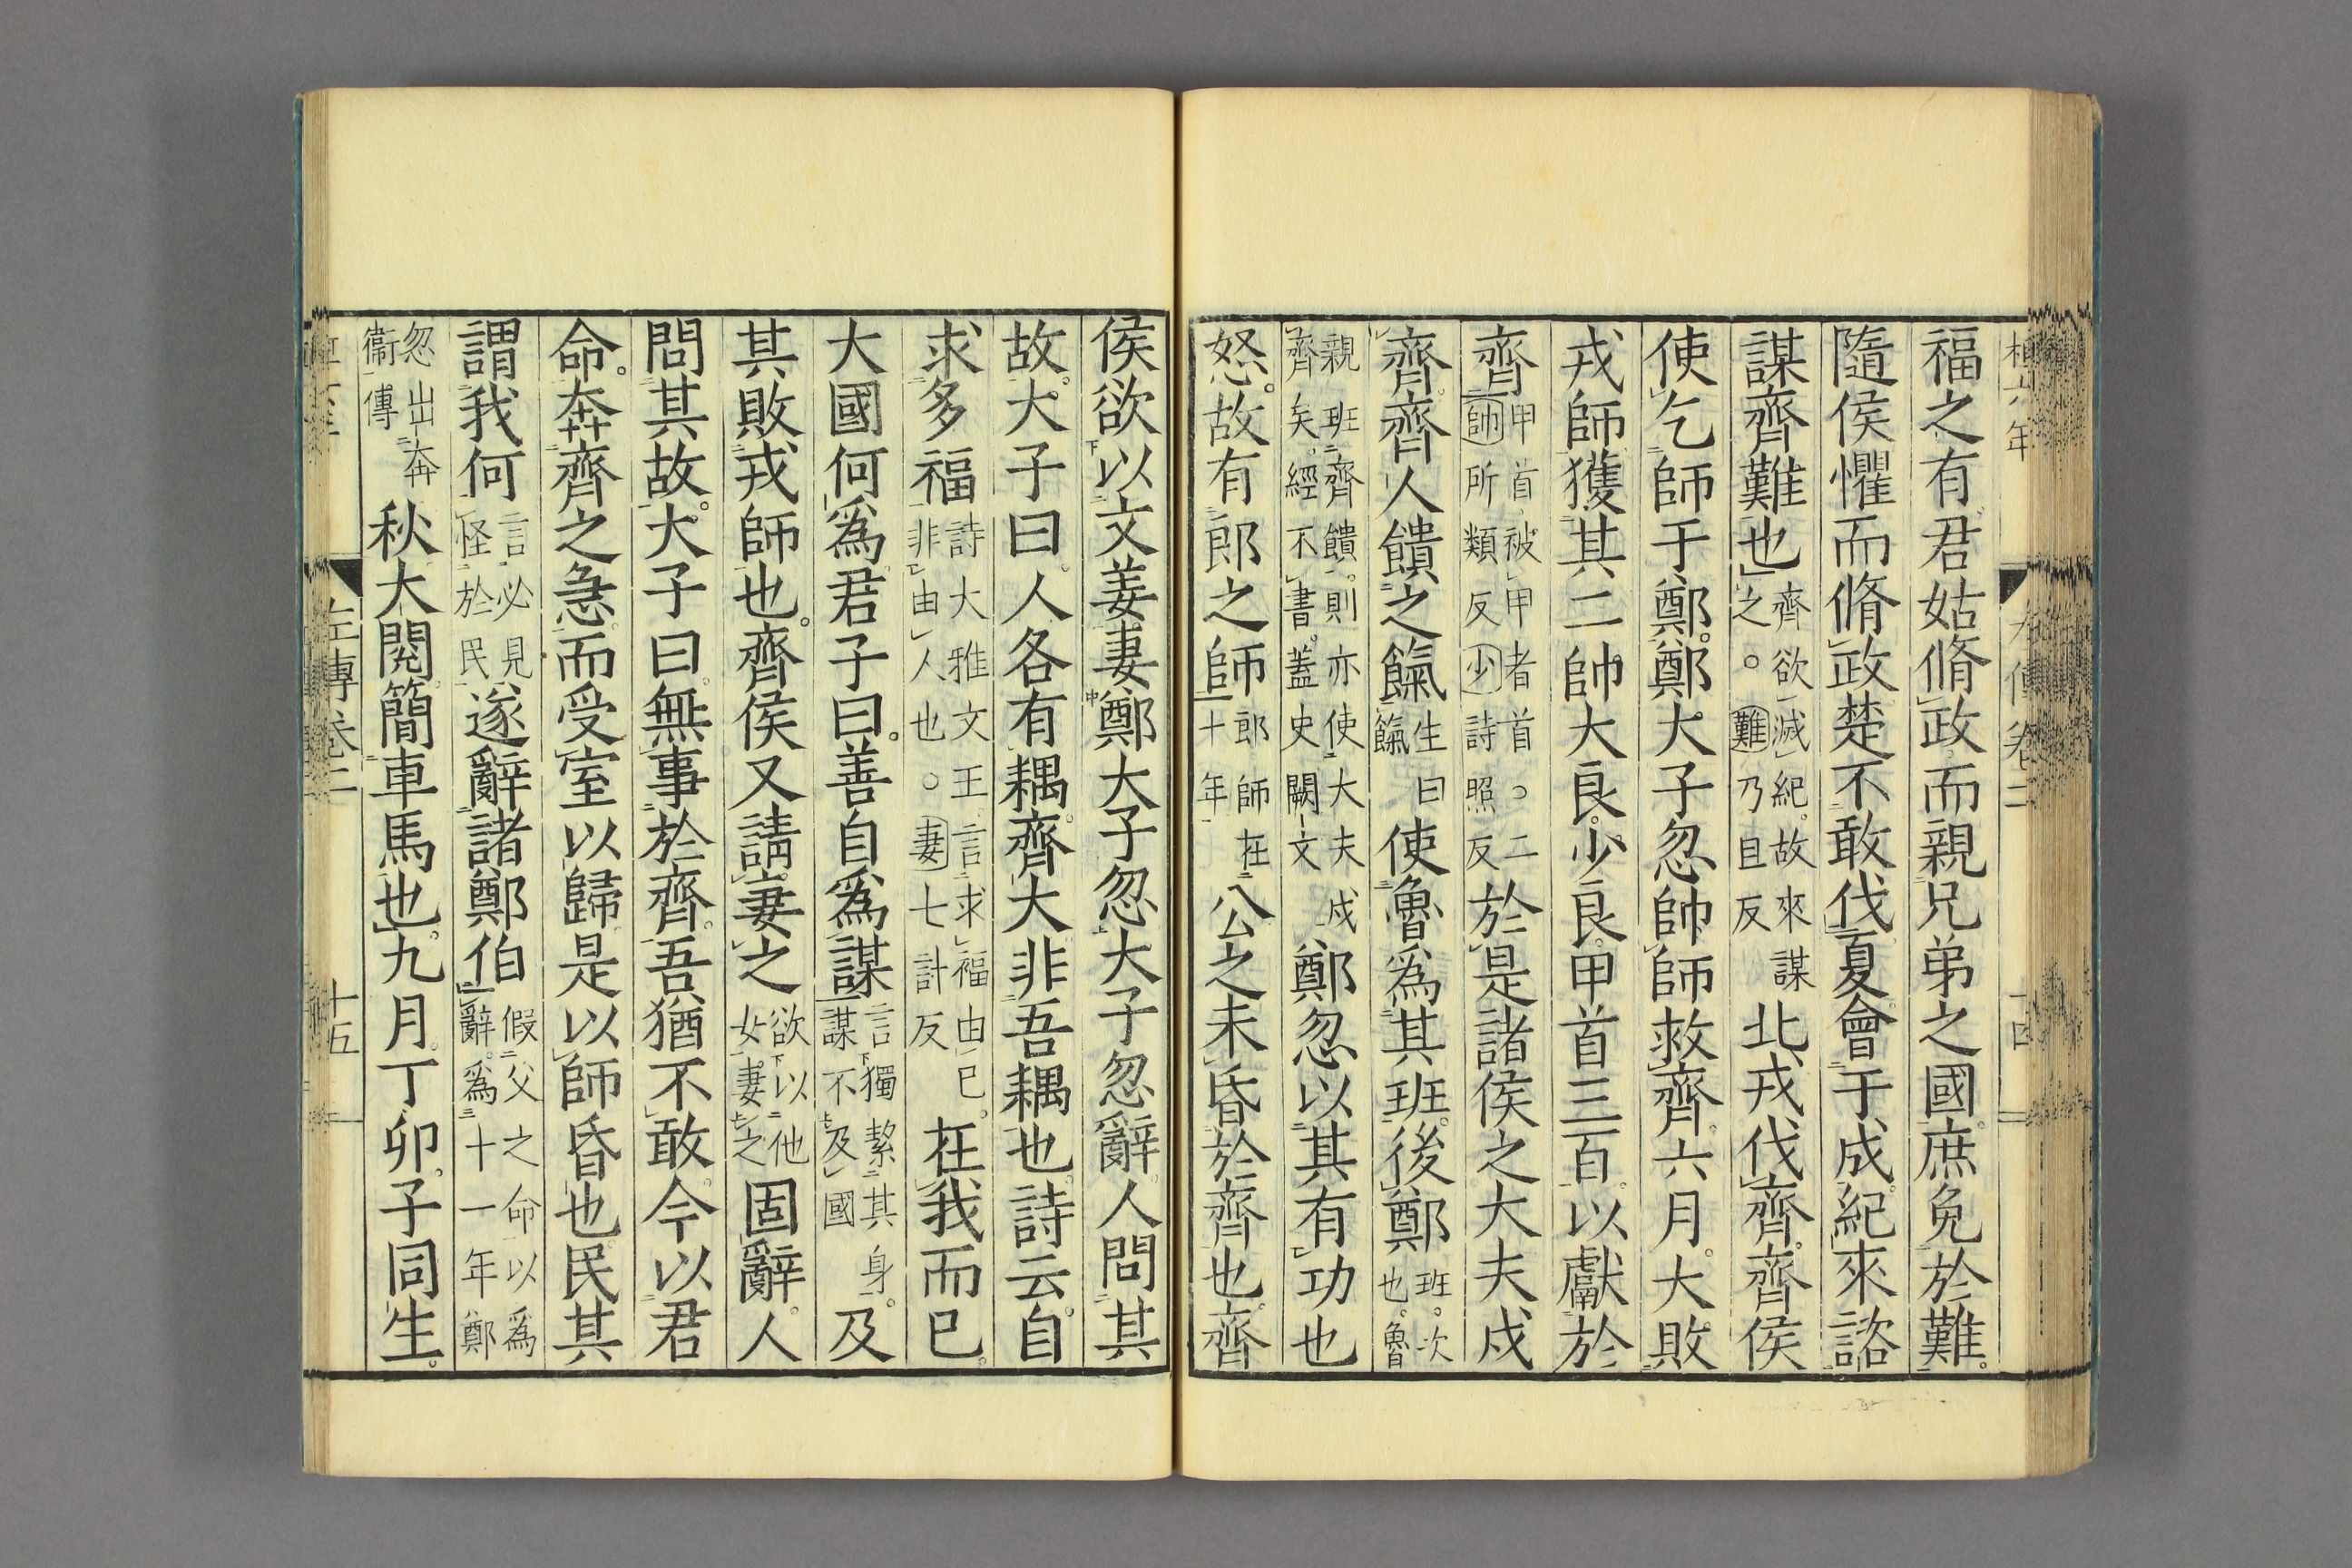 福之有君姑脩政而親兄弟之國庶免於難
隨侯懼而脩政楚不敢伐夏會于成紀來諮
謀齊難也齊欲滅紀故來謀之。難乃旦反北戎伐齊齊侯
使乞師于鄭鄭大子忽帥師救齊六月大敗
戎師獲其二帥大良少良甲首三百以獻於
齊甲首被甲者首。二帥所類反少詩照反於是諸侯之大夫戍
齊齊人饋之餼生曰餼使魯爲其班後鄭班次也魯
親班齊饋則亦使大夫戍齊矣經不書蓋史闕文鄭忽以其有功也
怒故有郎之師郎師在十年公之未昏於齊也齊
侯欲以文姜妻鄭大子忽大子忽辭人問其
故大子曰人各有耦齊大非吾耦也詩云自
求多福詩大雅文王言求福由己非由人也。妻七計反在我而已
大國何爲君子曰善自爲謀言獨絜其身謀不及國及
其敗戎師也齊侯又請妻之欲以他女妻之固辭人
問其故大子曰無事於齊吾猶不敢今以君
命奔齊之急而受室以歸是以師昏也民其
謂我何言必見怪於民遂辭諸鄭伯假父之命以爲辭爲十一年鄭
忽出奔衞傳秋大閱簡車馬也九月丁卯子同生
左傳卷二
十五